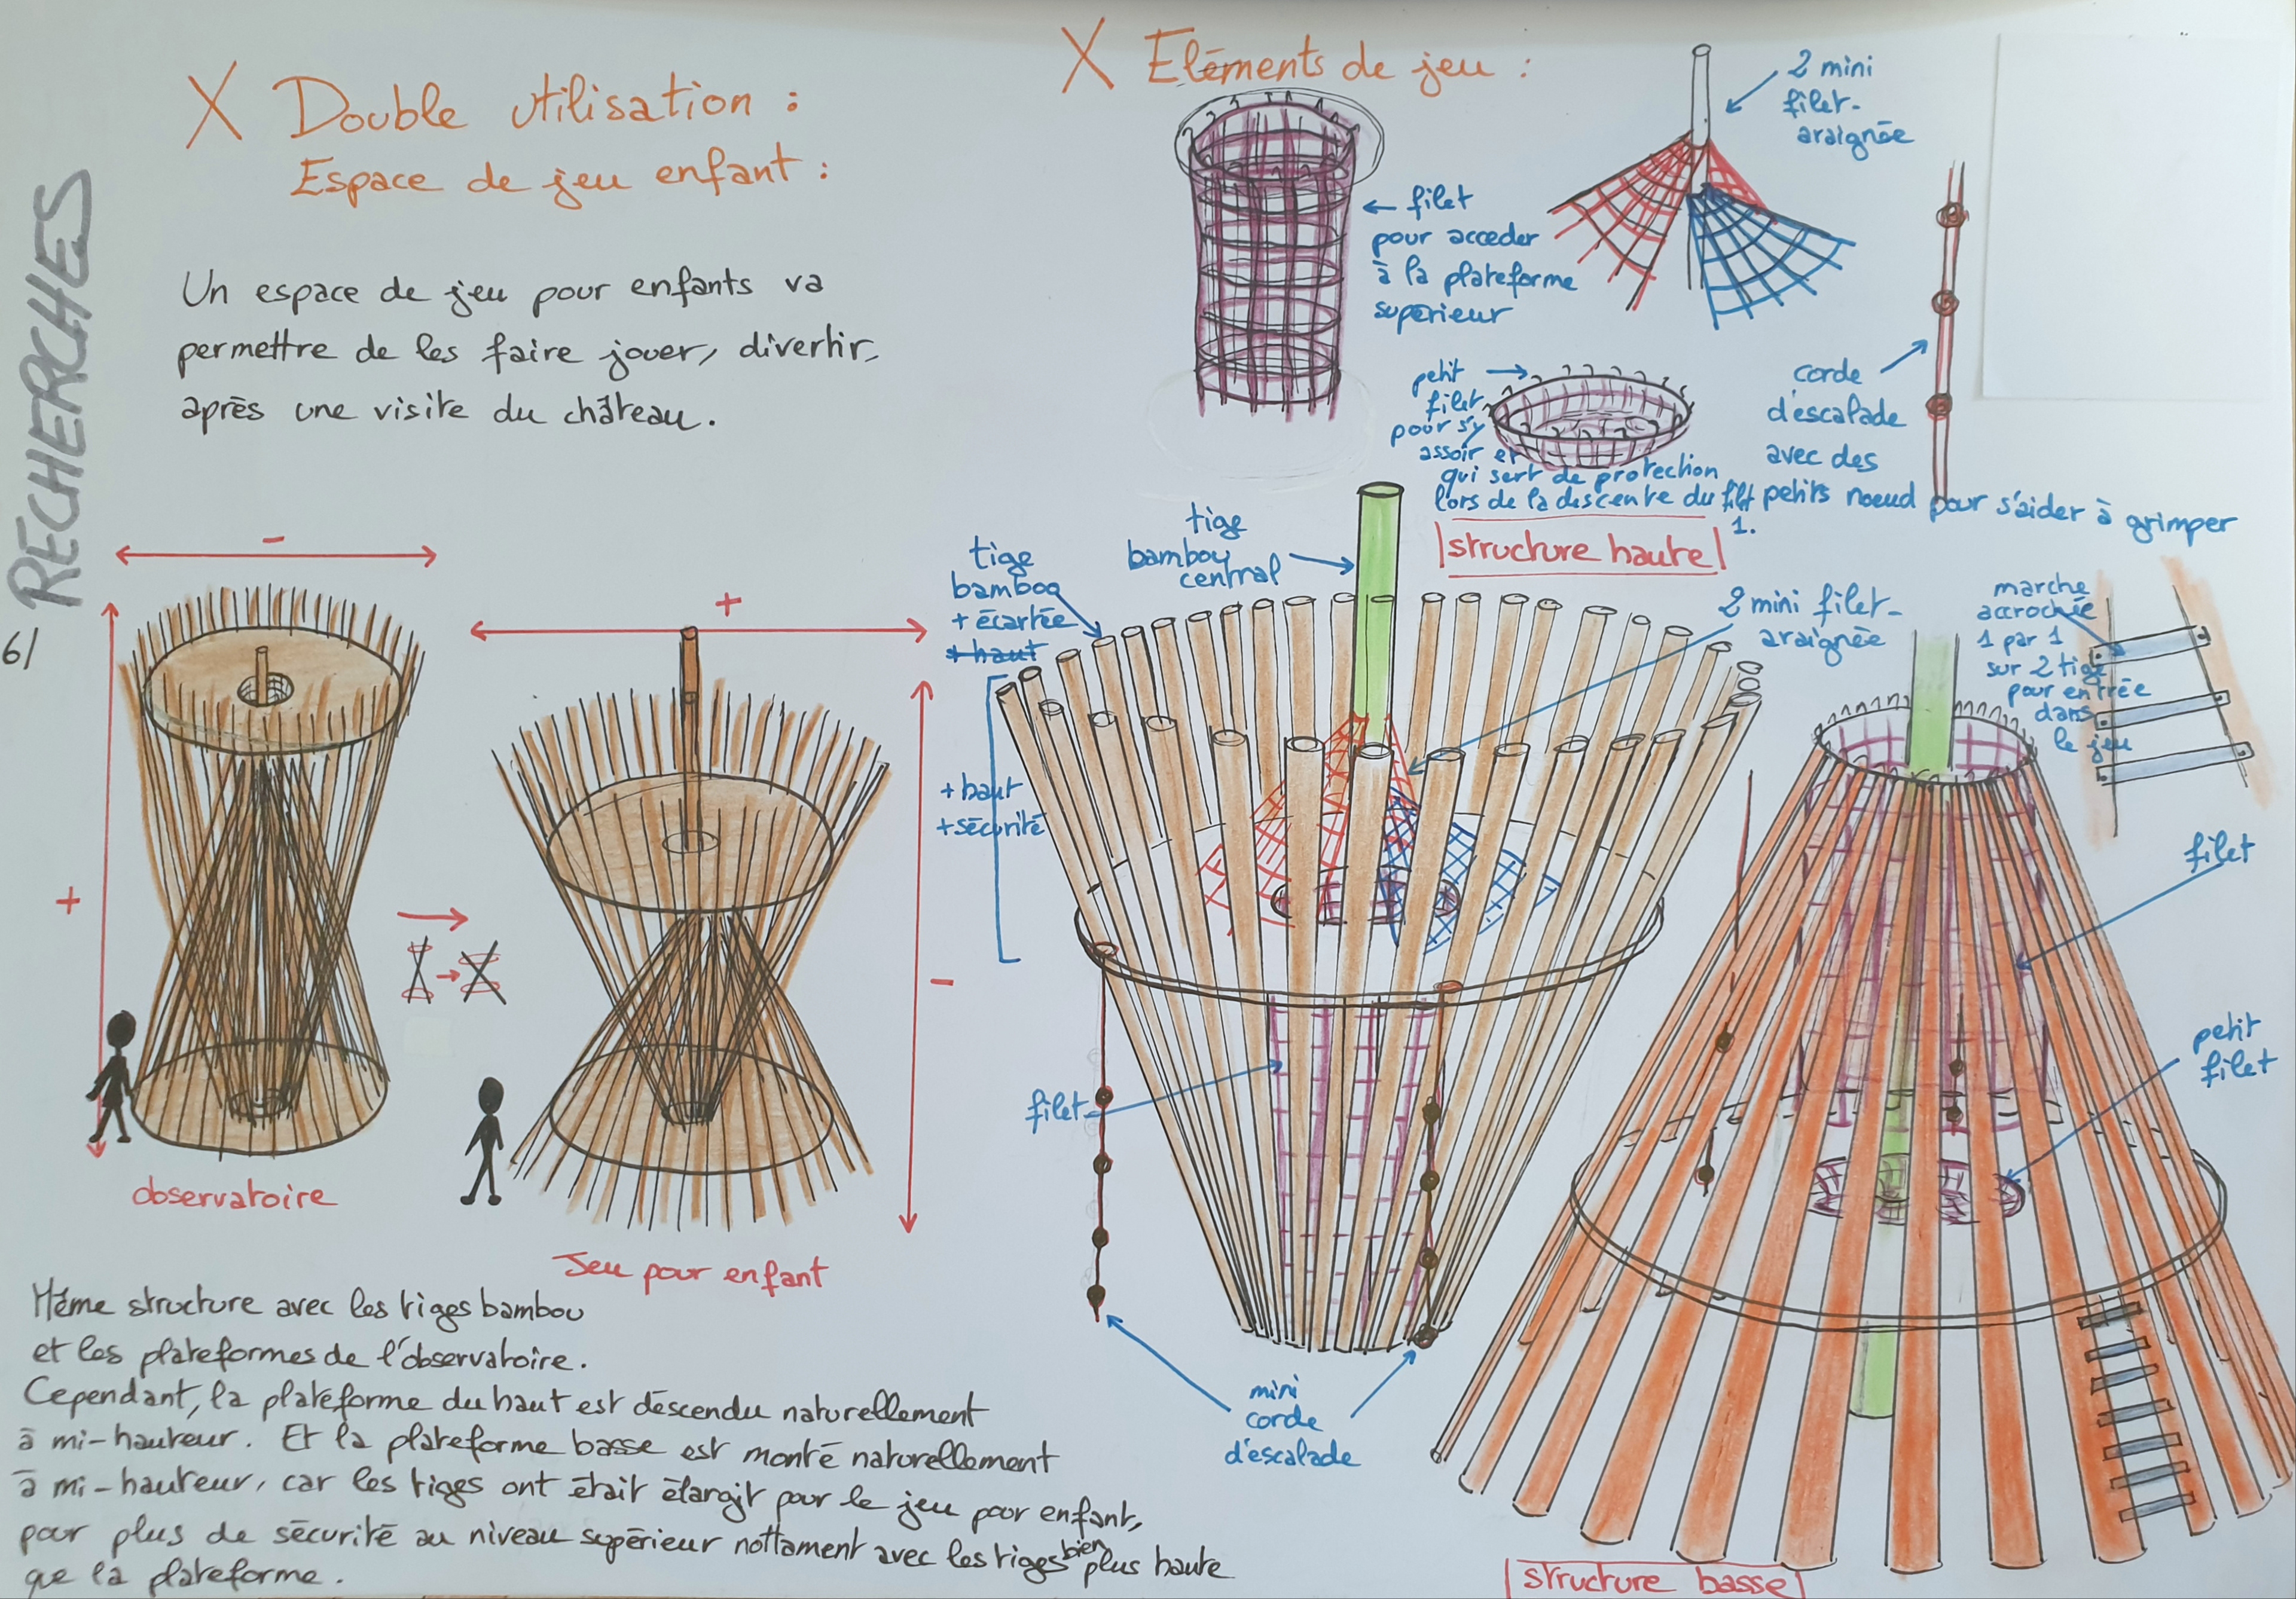 RECHERCHES
6/
X Double utilisation :
Espace de jeu enfant :
Un espace de jeu pour enfants va
permettre de les faire jouer, divertir,
après une visite du château.
-
+
+
-
observatoire
Jeu pour enfant
Même structure avec les tiges bambou
et les plateformes de l'observatoire.
Cependant, la plateforme du haut est descendu naturellement
à mi-hauteur. Et la plateforme basse est monté naturellement
à mi-hauteur, car les tiges ont était élargit pour le jeu pour enfant,
pour plus de sécurité au niveau supérieur nottament avec les tiges bien plus haute
que la plateforme.
X Eléments de jeu :
← filet
pour acceder
à la plateforme
supérieur
2 mini
filet-
araignée
petit
filet
pour s'y
assoir et
qui sert de protection
lors de la descente du filet
1.
corde
d'escalade
avec des
petits noeud pour s'aider à grimper
structure haute
tige
bambou
central
tige
bambou
+ écartée
+ haut
+ haut
+ sécurité
2 mini filet-
araignée
filet
mini
corde
d'escalade
marche
accrochée
1 par 1
sur 2 tige
pour entrée
dans
le jeu
filet
petit
filet
structure basse